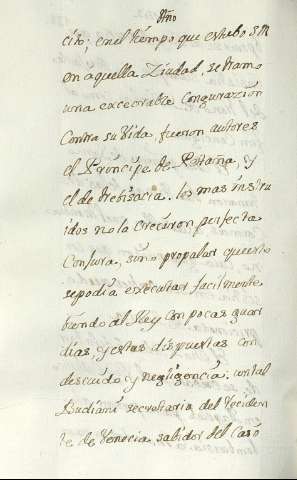 Vno
cito; en el tiempo que estubo S M
en aquella Ziudad, se tramo
una execrable congurazzion
Contra su Vida, fueron autores
el Principe de y
el de los mas instru
idos no la creieron perfecta
Conjura, sino propalar que esto
se podia executar facilmente
biendo al Rey con pocas guar
dias, y estas dispuestas con
descuido, y negligencia; un tal
Budiani secretario del reciden
te de Venecia, sabidor del Caso